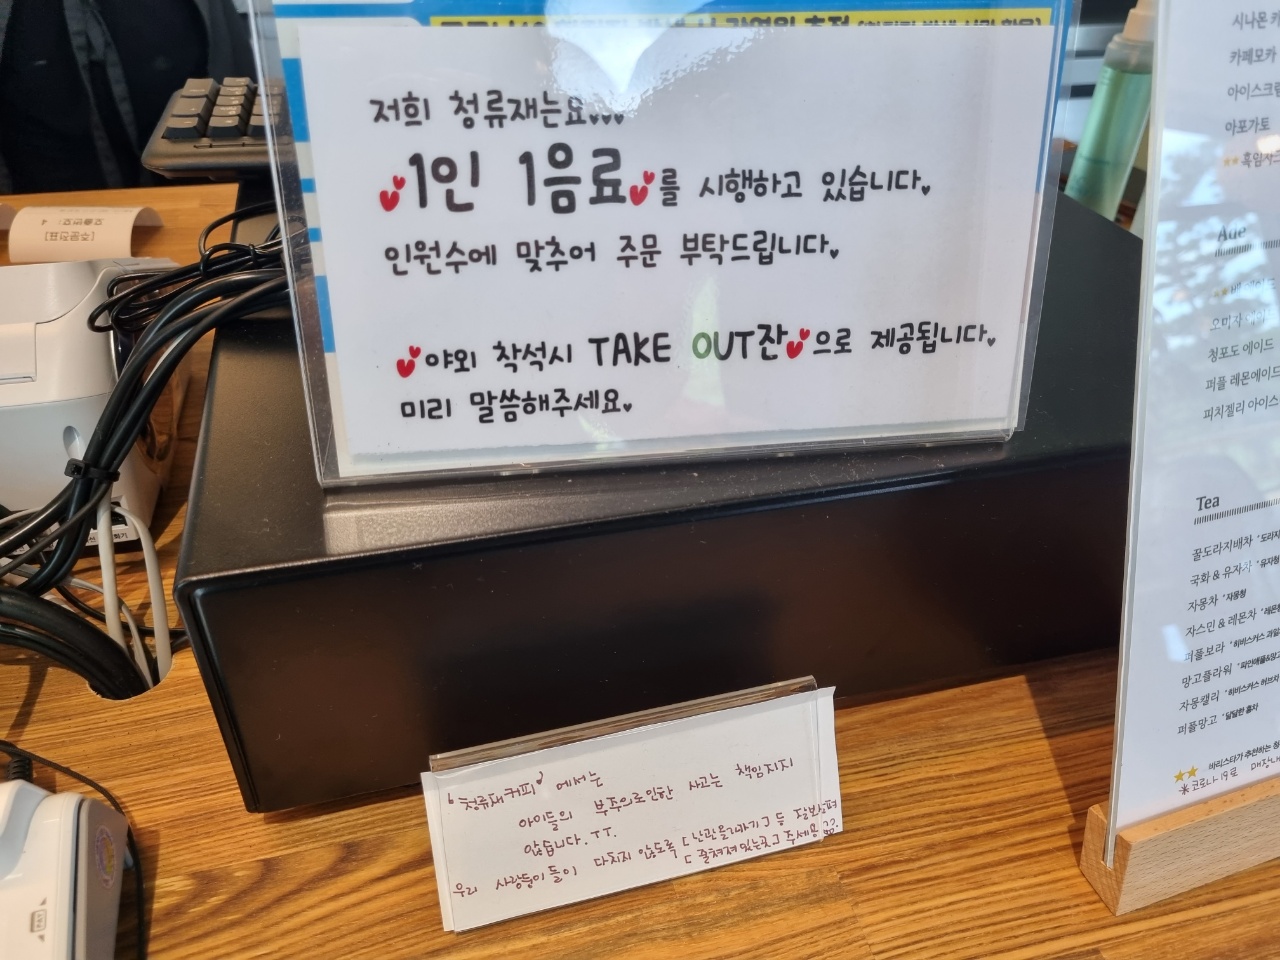 저희 청류재는요...
1인 1음료를 시행하고 있습니다.
인원수에 맞추어 주문 부탁드립니다.
야외 착석시 TAKE OUT잔으로 제공됩니다.
미리 말씀해주세요.
'청류재커피' 에서는
아이들의 부주의로인한 사고는 책임지지
않습니다. ㅜㅜ.
우리 사랑둥이들이 다치지 않도록 [난관을기어가기] 등 잘보살펴
[줄쳐져있는곳] 주세용
[주문전표]
호출번호: 4
시나몬
카페모카
아이스크림
아포가토
흑임자
Ade
오미자 에이드
청포도 에이드
퍼플 레몬에이드
피치젤리 아이스
Tea
꿀도라지배차
국화 & 유자차
자몽차 *자몽청
자스민 & 레몬차
퍼플보라
망고플라워
자몽캘리
퍼플망고 *달달한 홍차
바리스타가 추천하는
※코로나19로